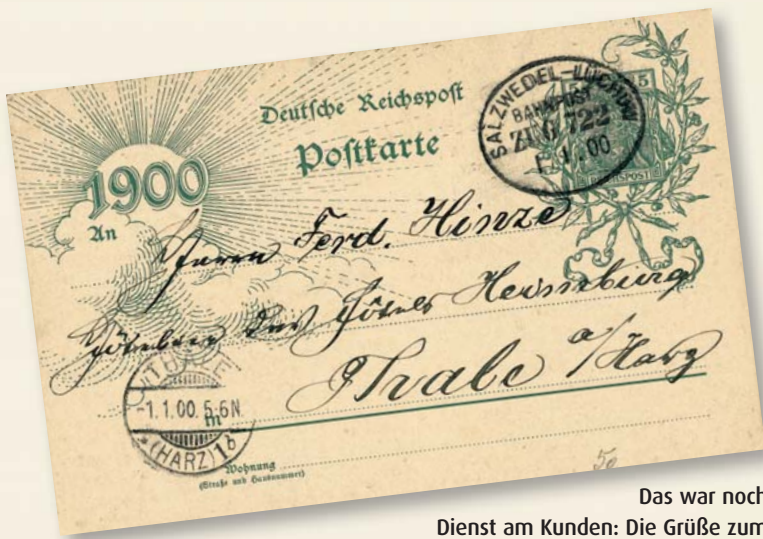 Deutsche Reichspost
Postkarte
1900
An
SALZWEDEL-LÜCHOW
BAHNPOST
ZUG 722
1.1.00
REICHSPOST
Herrn Ferd. Hinze
Hôtel
Thale a/Harz
THALE
-1.1.00. 5-6N.
*(HARZ)1b
in
Wohnung
(Straße und Hausnummer)
50
Das war noch
Dienst am Kunden: Die Grüße zum